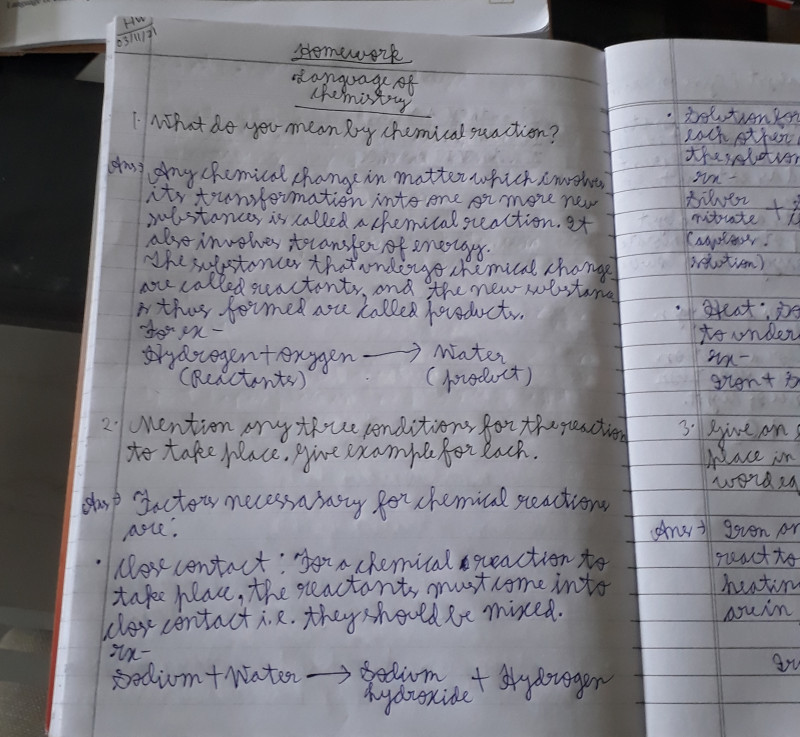 HW
03/11/21
Homework
Language of
chemistry
1. What do you mean by chemical reaction?
Ans→ Any chemical change in matter which involves
its transformation into one or more new
substances is called a chemical reaction. It
also involves transfer of energy.
The substances that undergo chemical change
are called reactants, and the new substance
s thus formed are called products.
For ex-
Hydrogen + Oxygen → Water
(Reactants) (product)
2. Mention any three conditions for the reaction
to take place. Give example for each.
Ans→ Factors necessasary for chemical reactions
are:
• Close contact: For a chemical reaction to
take place, the reactants must come into
close contact i.e. they should be mixed.
Ex-
Sodium + Water → Sodium + Hydrogen
hydroxide
• Solution for
each other
the solution
Ex-
Silver +
nitrate
solution)
• Heat:
to under
Ex-
Iron +
3. Give an
place in
word eq
Ans→ Iron an
react to
heating
are in